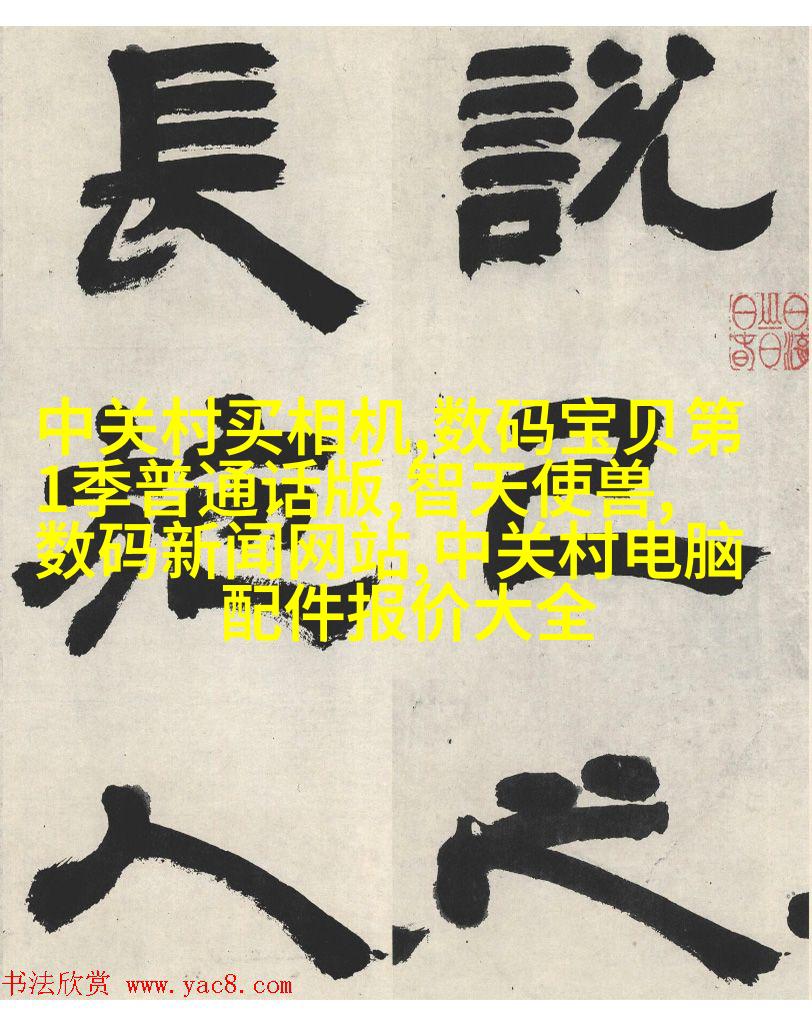 說己之
長施人
中关村买相机,数码宝贝第
1季普通话版,智天使兽,
数码新闻网站,中关村电脑
配件报价大全
书法欣赏 www.yac8.com